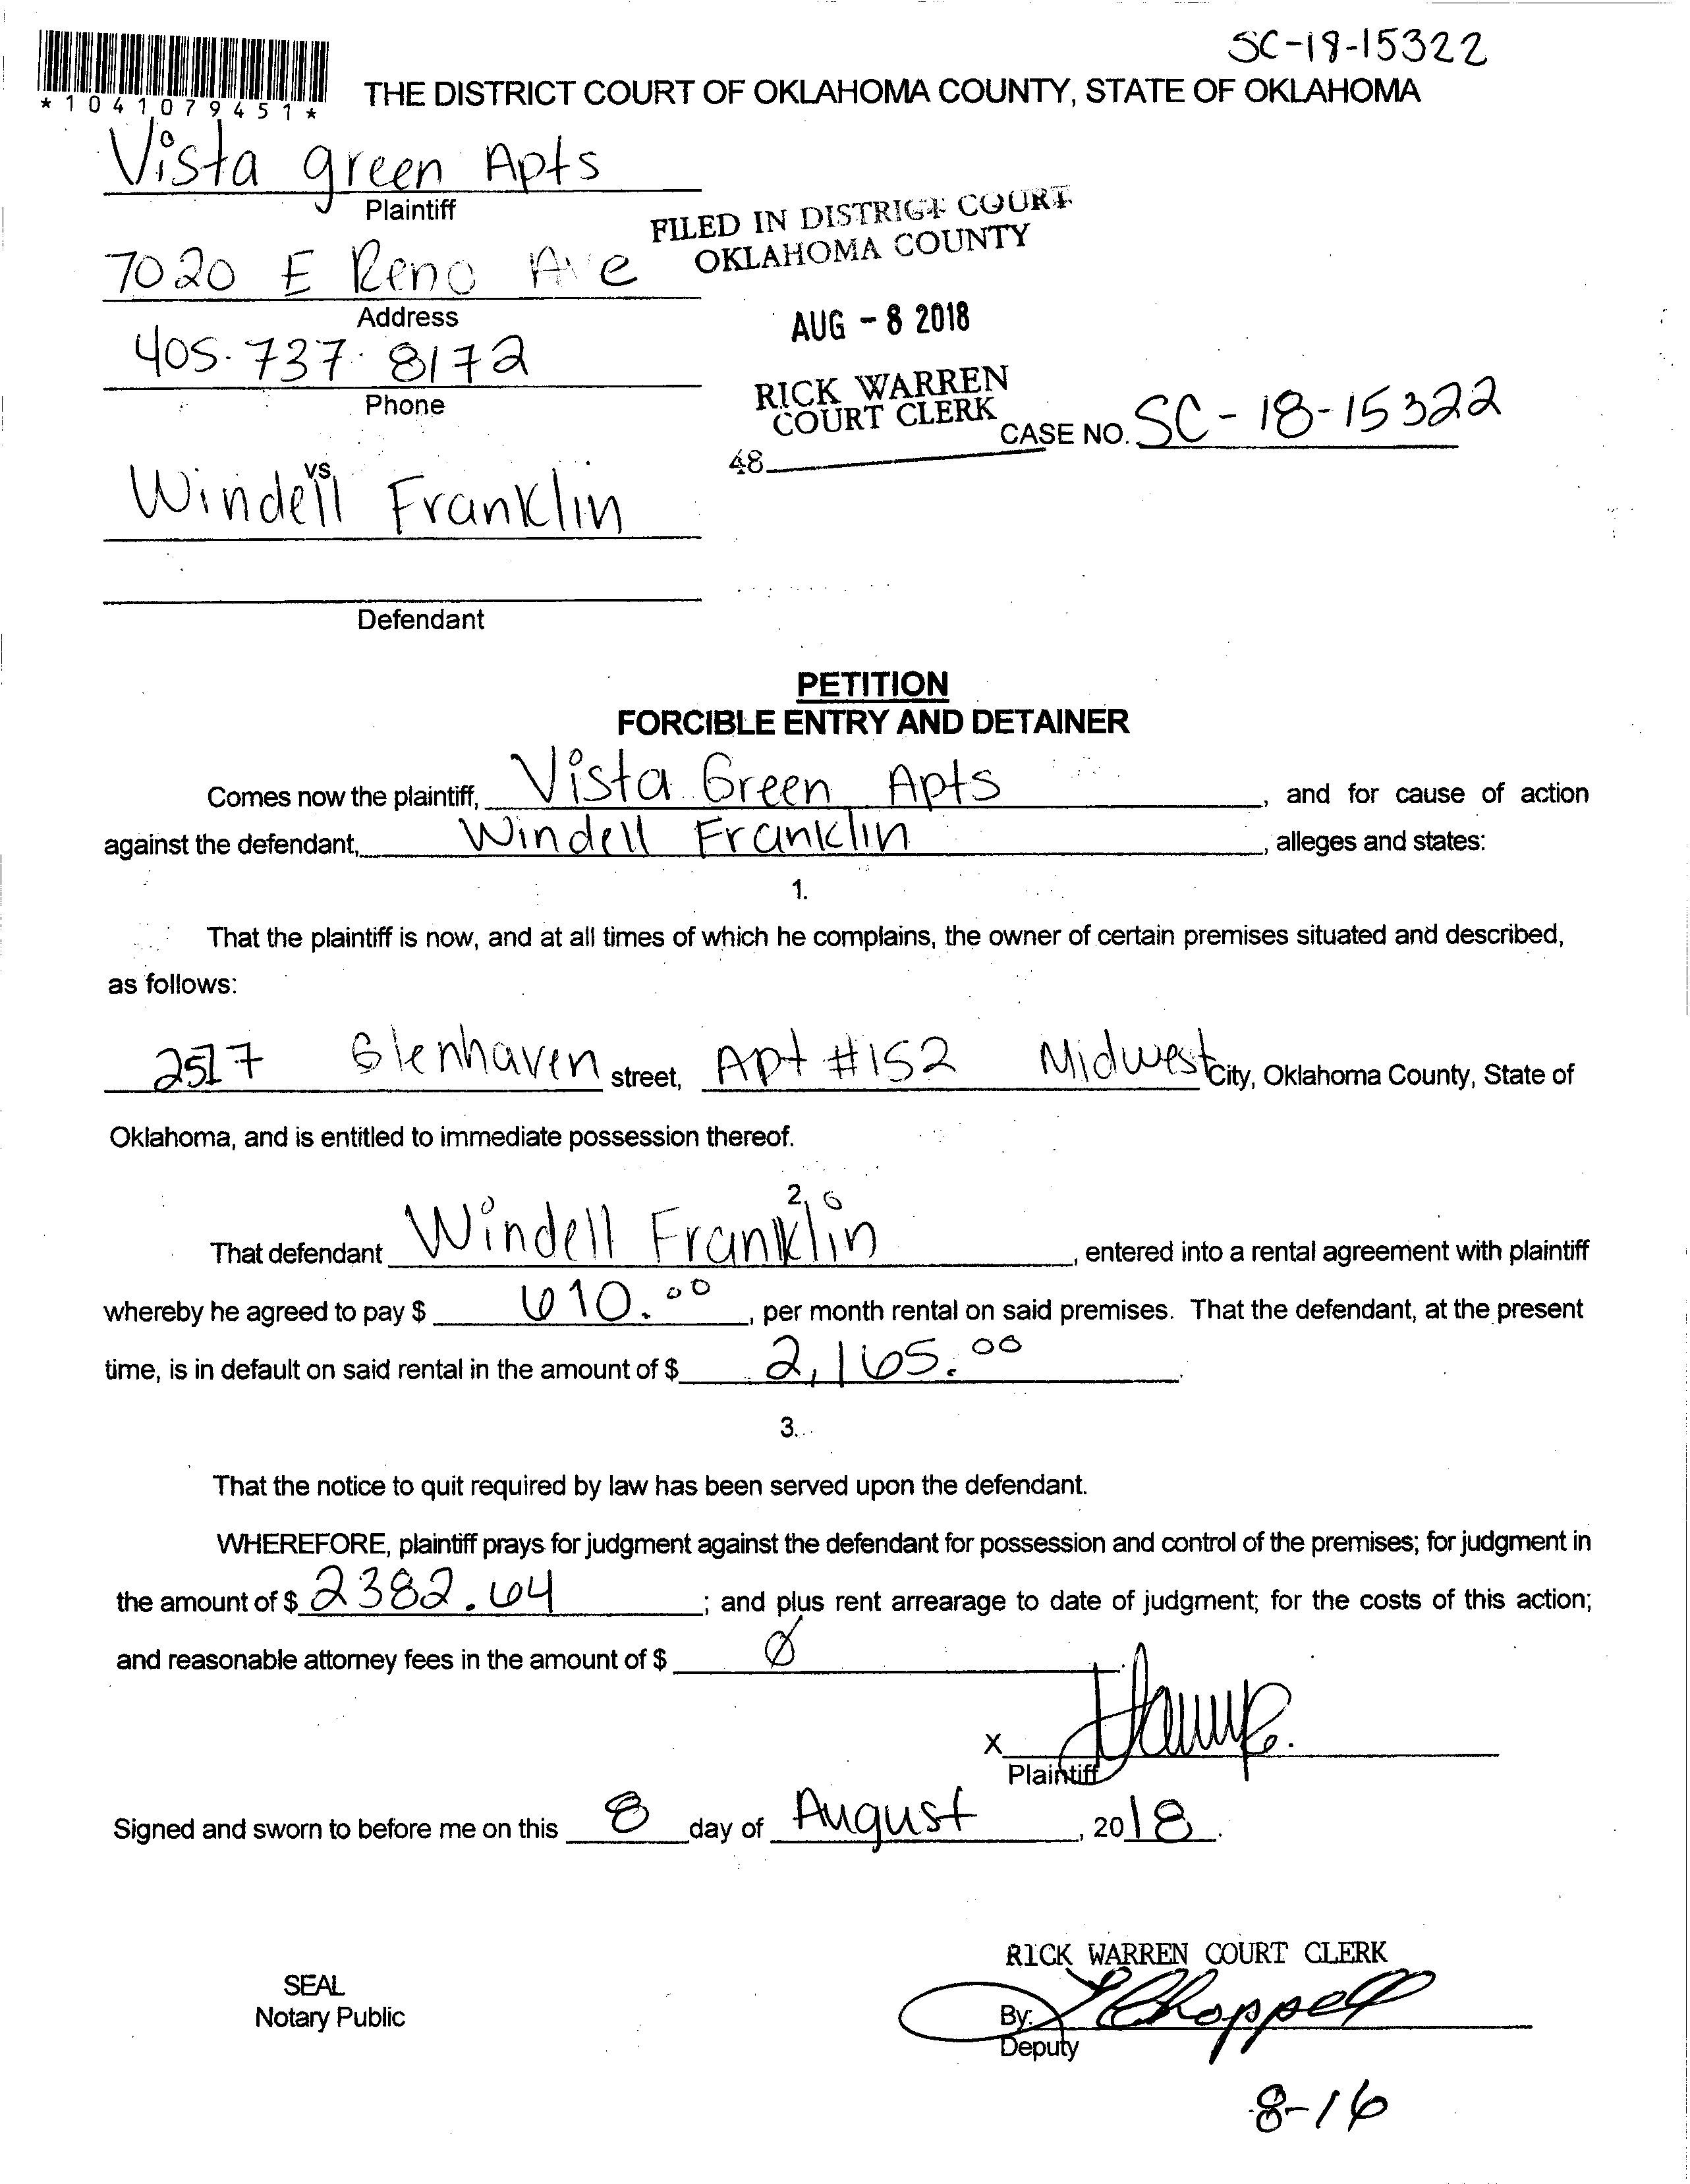 SC-18-15322
*1041079451*
THE DISTRICT COURT OF OKLAHOMA COUNTY, STATE OF OKLAHOMA
Vista green Apts
Plaintiff
FILED IN DISTRICT COURT
OKLAHOMA COUNTY
7020 E Reno Ave
Address
AUG - 8 2018
405-737-8172
Phone
RICK WARREN
COURT CLERK
CASE NO. SC-18-15322
48
vs.
Windell Franklin
Defendant
PETITION
FORCIBLE ENTRY AND DETAINER
Comes now the plaintiff, Vista Green Apts, and for cause of action
against the defendant, Windell Franklin, alleges and states:
1.
That the plaintiff is now, and at all times of which he complains, the owner of certain premises situated and described,
as follows:
2517 Glenhaven street, Apt #152 Midwest City, Oklahoma County, State of
Oklahoma, and is entitled to immediate possession thereof.
2.
That defendant Windell Franklin, entered into a rental agreement with plaintiff
whereby he agreed to pay $ 610.00, per month rental on said premises. That the defendant, at the present
time, is in default on said rental in the amount of $ 2,165.00.
3.
That the notice to quit required by law has been served upon the defendant.
WHEREFORE, plaintiff prays for judgment against the defendant for possession and control of the premises; for judgment in
the amount of $ 2382.64; and plus rent arrearage to date of judgment; for the costs of this action;
and reasonable attorney fees in the amount of $ Ø
X
Plaintiff
Signed and sworn to before me on this 8 day of August, 2018.
RICK WARREN COURT CLERK
SEAL
Notary Public
By: Choppell
Deputy
8-16